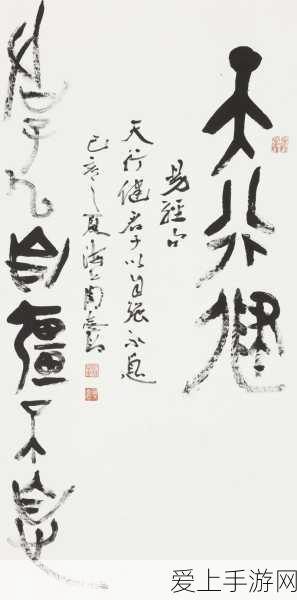 天行健
易經
天行健君子以自强不息
己亥之夏海上周
君子以自彊不息
爱上手游网